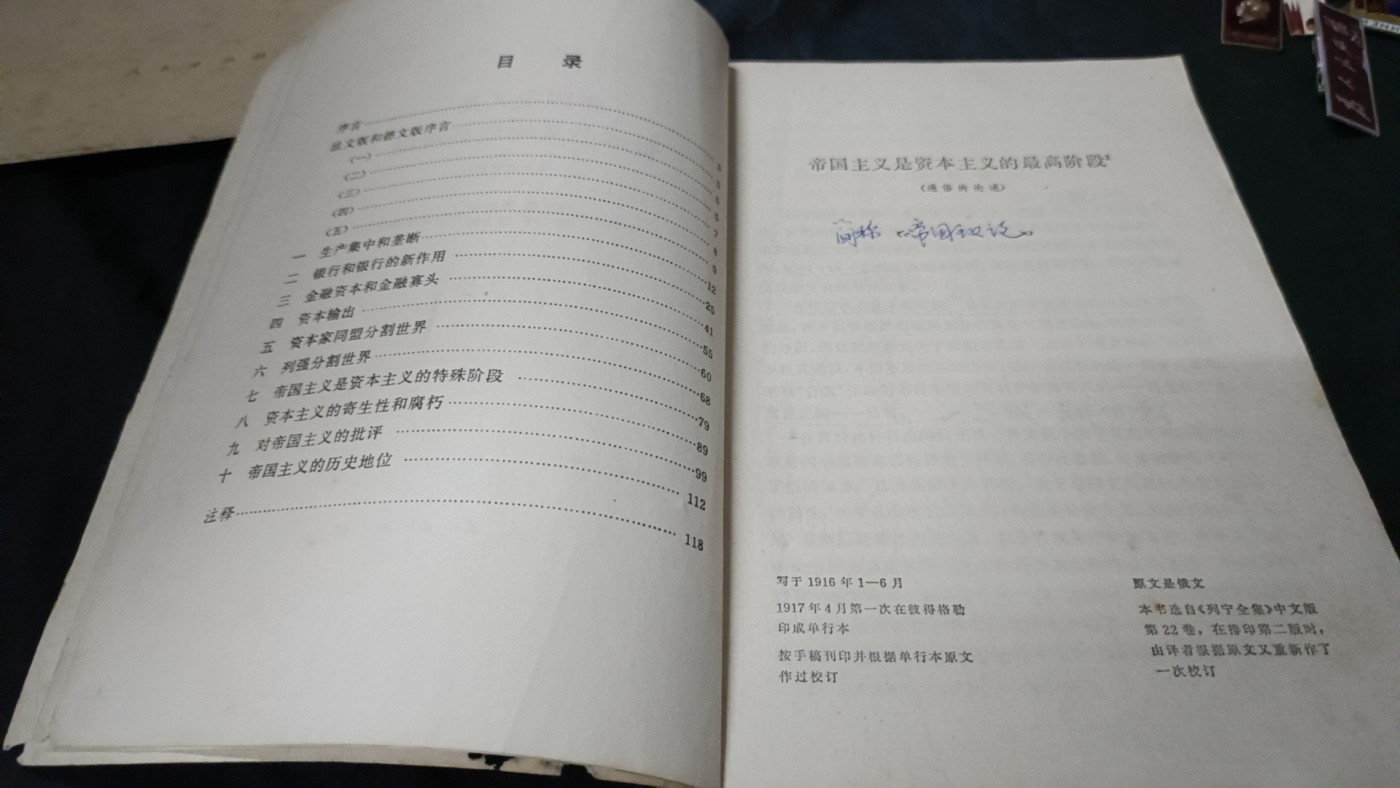 目 录
序言……3
法文版和德文版序言……5
(一)……5
(二)……6
(三)……7
(四)……8
(五)……9
一 生产集中和垄断……12
二 银行和银行的新作用……25
三 金融资本和金融寡头……41
四 资本输出……55
五 资本家同盟分割世界……60
六 列强分割世界……68
七 帝国主义是资本主义的特殊阶段……79
八 资本主义的寄生性和腐朽……89
九 对帝国主义的批评……99
十 帝国主义的历史地位……112
注释……118
帝国主义是资本主义的最高阶段
(通俗的论述)
简称《帝国主义论》
写于 1916 年 1—6 月
1917 年 4 月第一次在彼得格勒
印成单行本
按手稿刊印并根据单行本原文
作过校订
原文是俄文
本书选自《列宁全集》中文版
第 22 卷,在排印第二版时,
由译者根据原文又重新作了
一次校订